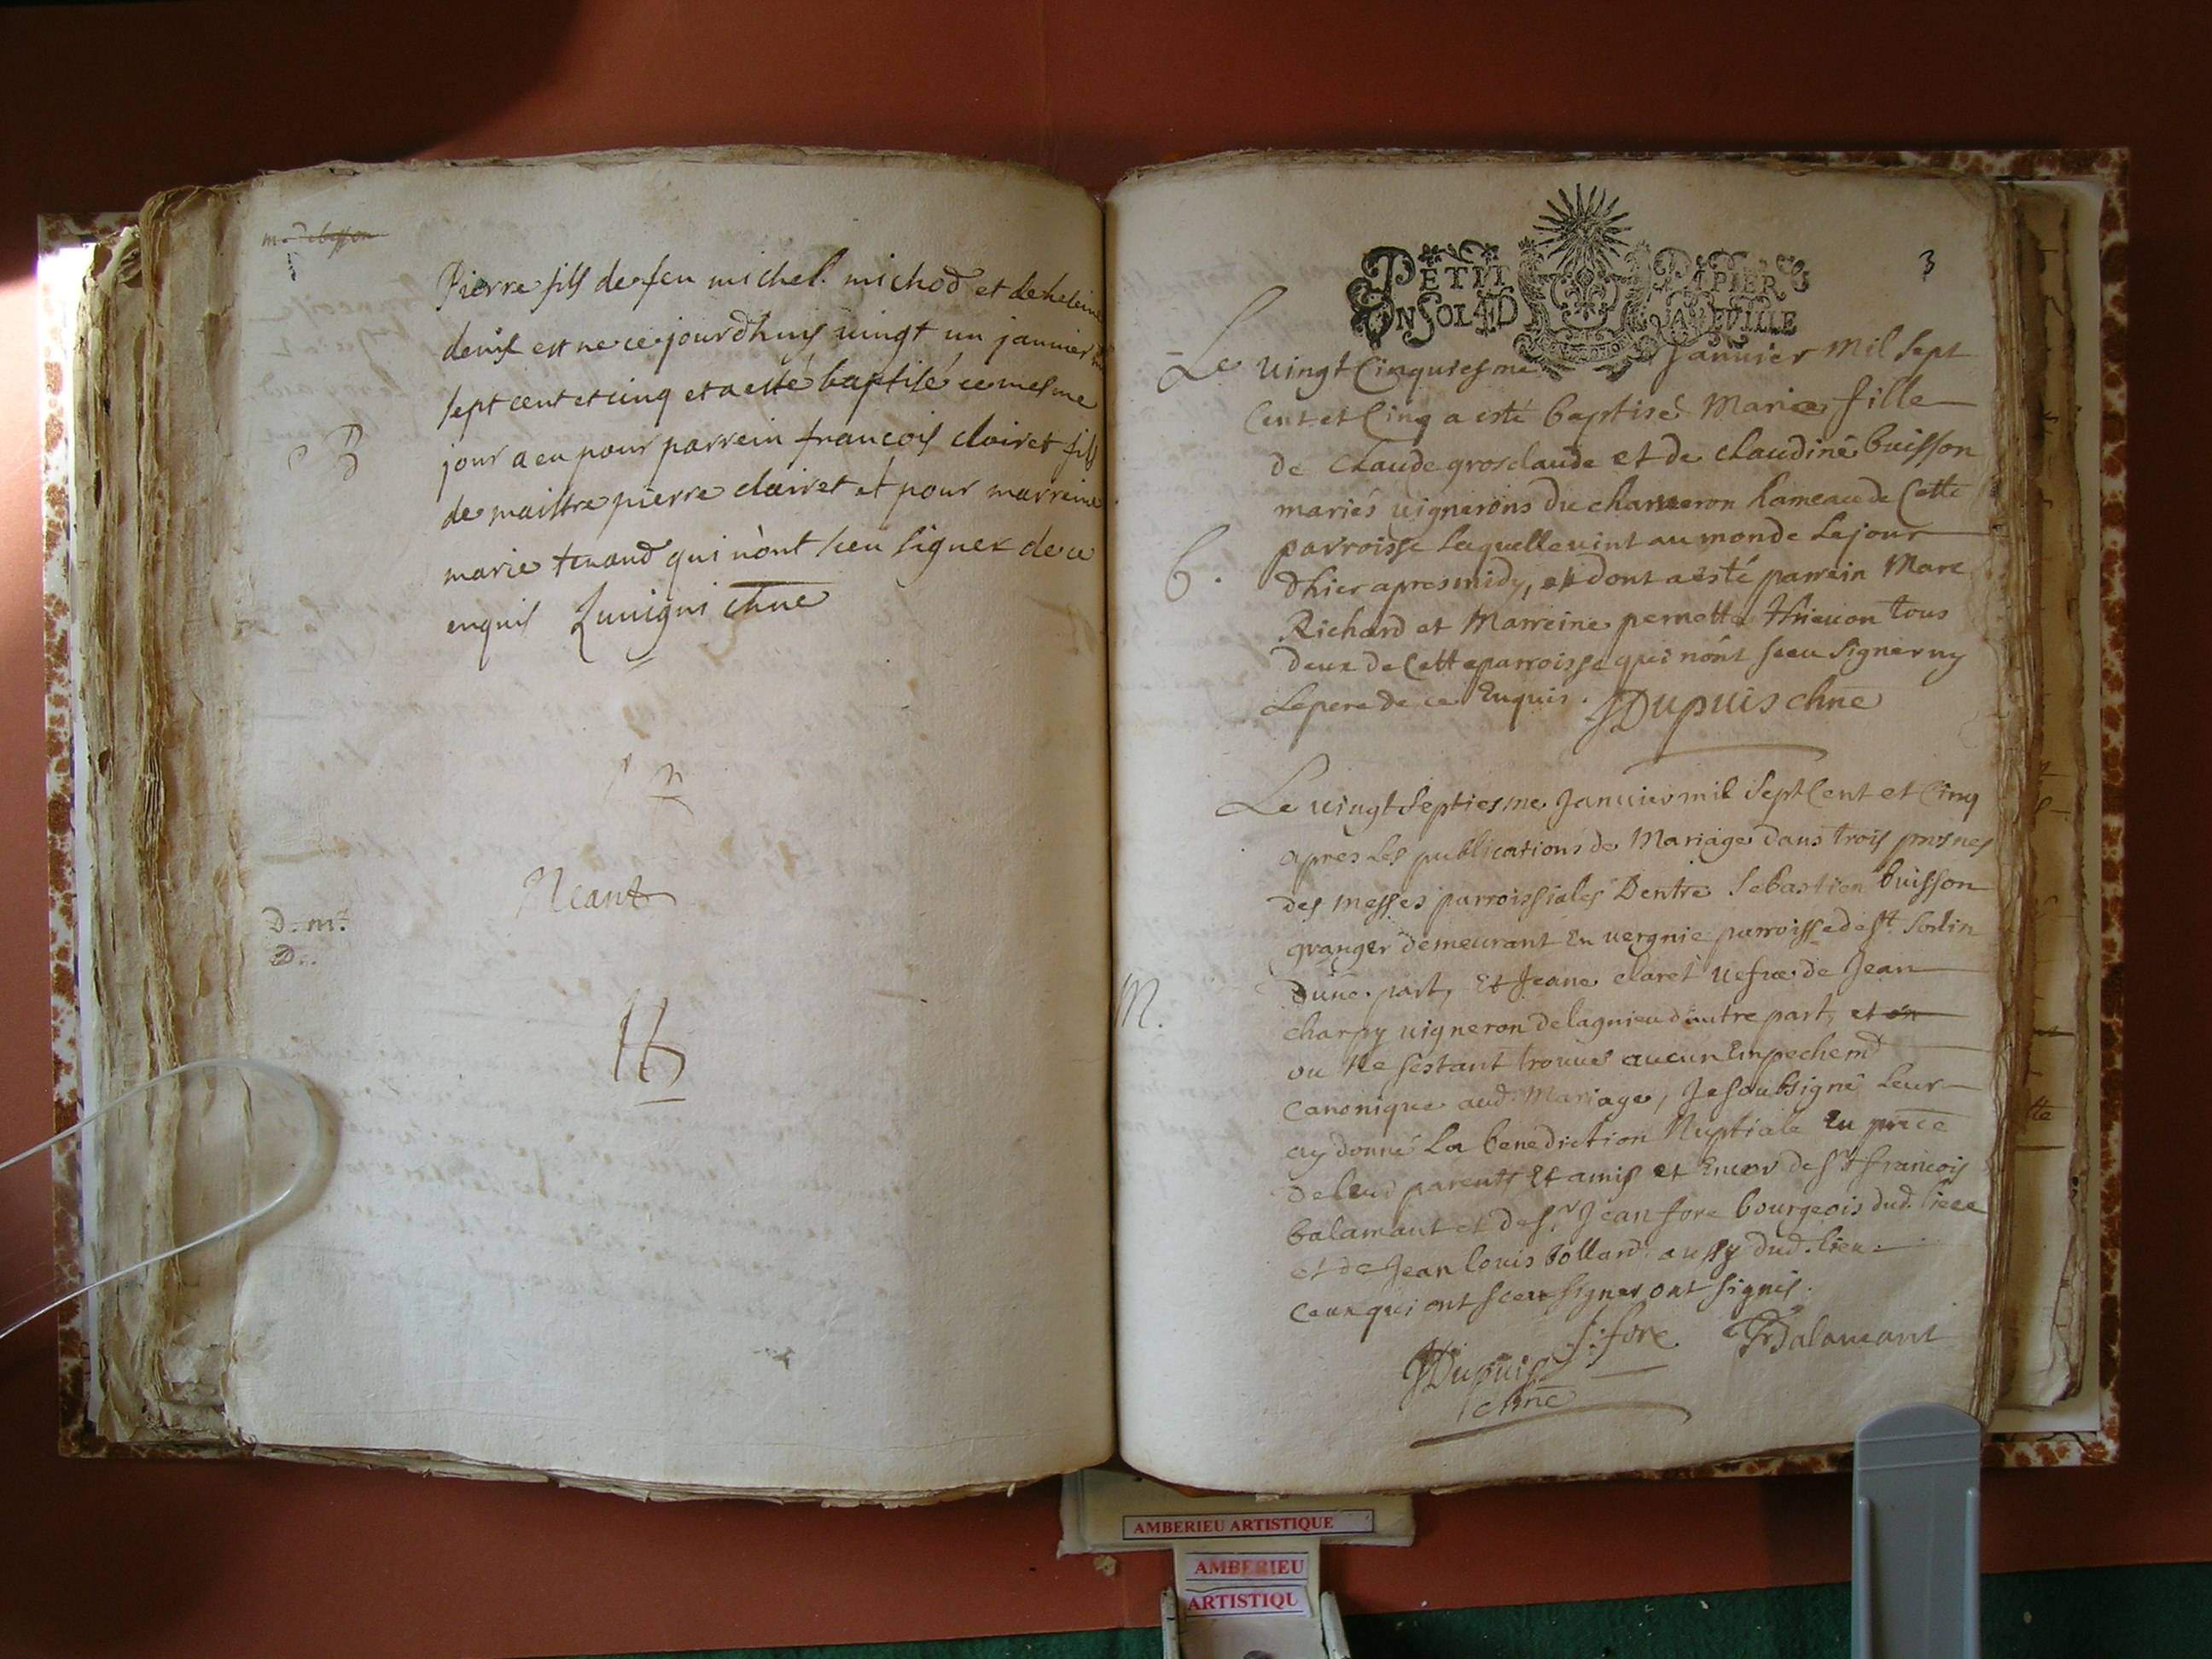 Pierre fils de feu michel michod et de heleine
denis est ne ce jourdhuy vingt un janvier
sept cent et cinq et a esté baptisé ce mesme
jour a eu pour parrein francois clairet fils
de maistre pierre clairet et pour marreine
marie tenand qui n'ont sceu signer de ce
enquis chne
B
Neant
D. mt.
D.
3
PETIT PAPIER
UN SOL 4 D LA FEUILLE
Le vingt Cinquiesme Janvier Mil sept
Cent et Cinq a esté baptisé Marie fille
de Claude grosclaude et de claudine buisson
mariés vignerons du charveron hameau de Cette
parroisse laquelle vint au monde Le jour
dhier apres midy, et dont a esté parrein Marc
Richard et Marreine pernette Thievon tous
deux de Cette parroisse qui n'ont sceu signer ny
Le pere de ce Enquis. JDupuis chne
b.
Le vingt Septiesme Janvier mil Sept Cent et Cinq
apres Les publications de Mariage dans trois prosnes
des messes parroissiales Dentre Sebastien buisson
granger demeurant En vergnie parroisse de st. Sorlin
dune part, Et Jeane claret vefve de Jean
charpy vigneron de lagnieu dautre part, et on
ou Ne sestant trouvé aucun Empechemt
Canonique aud. Mariage, Je soubsigné Leur
ay donné La benediction Nuptiale En prece
de leurs parents Et amis et Encor de sr francois
balamant et de sr. Jean fore bourgeois dud. lieu
et de Jean louis bollard aussy dud. lieu.
Ceux qui ont sceu signer ont signés.
M.
J. fore FBalamant
JDupuis
chne
AMBERIEU ARTISTIQUE
AMBERIEU
ARTISTIQU